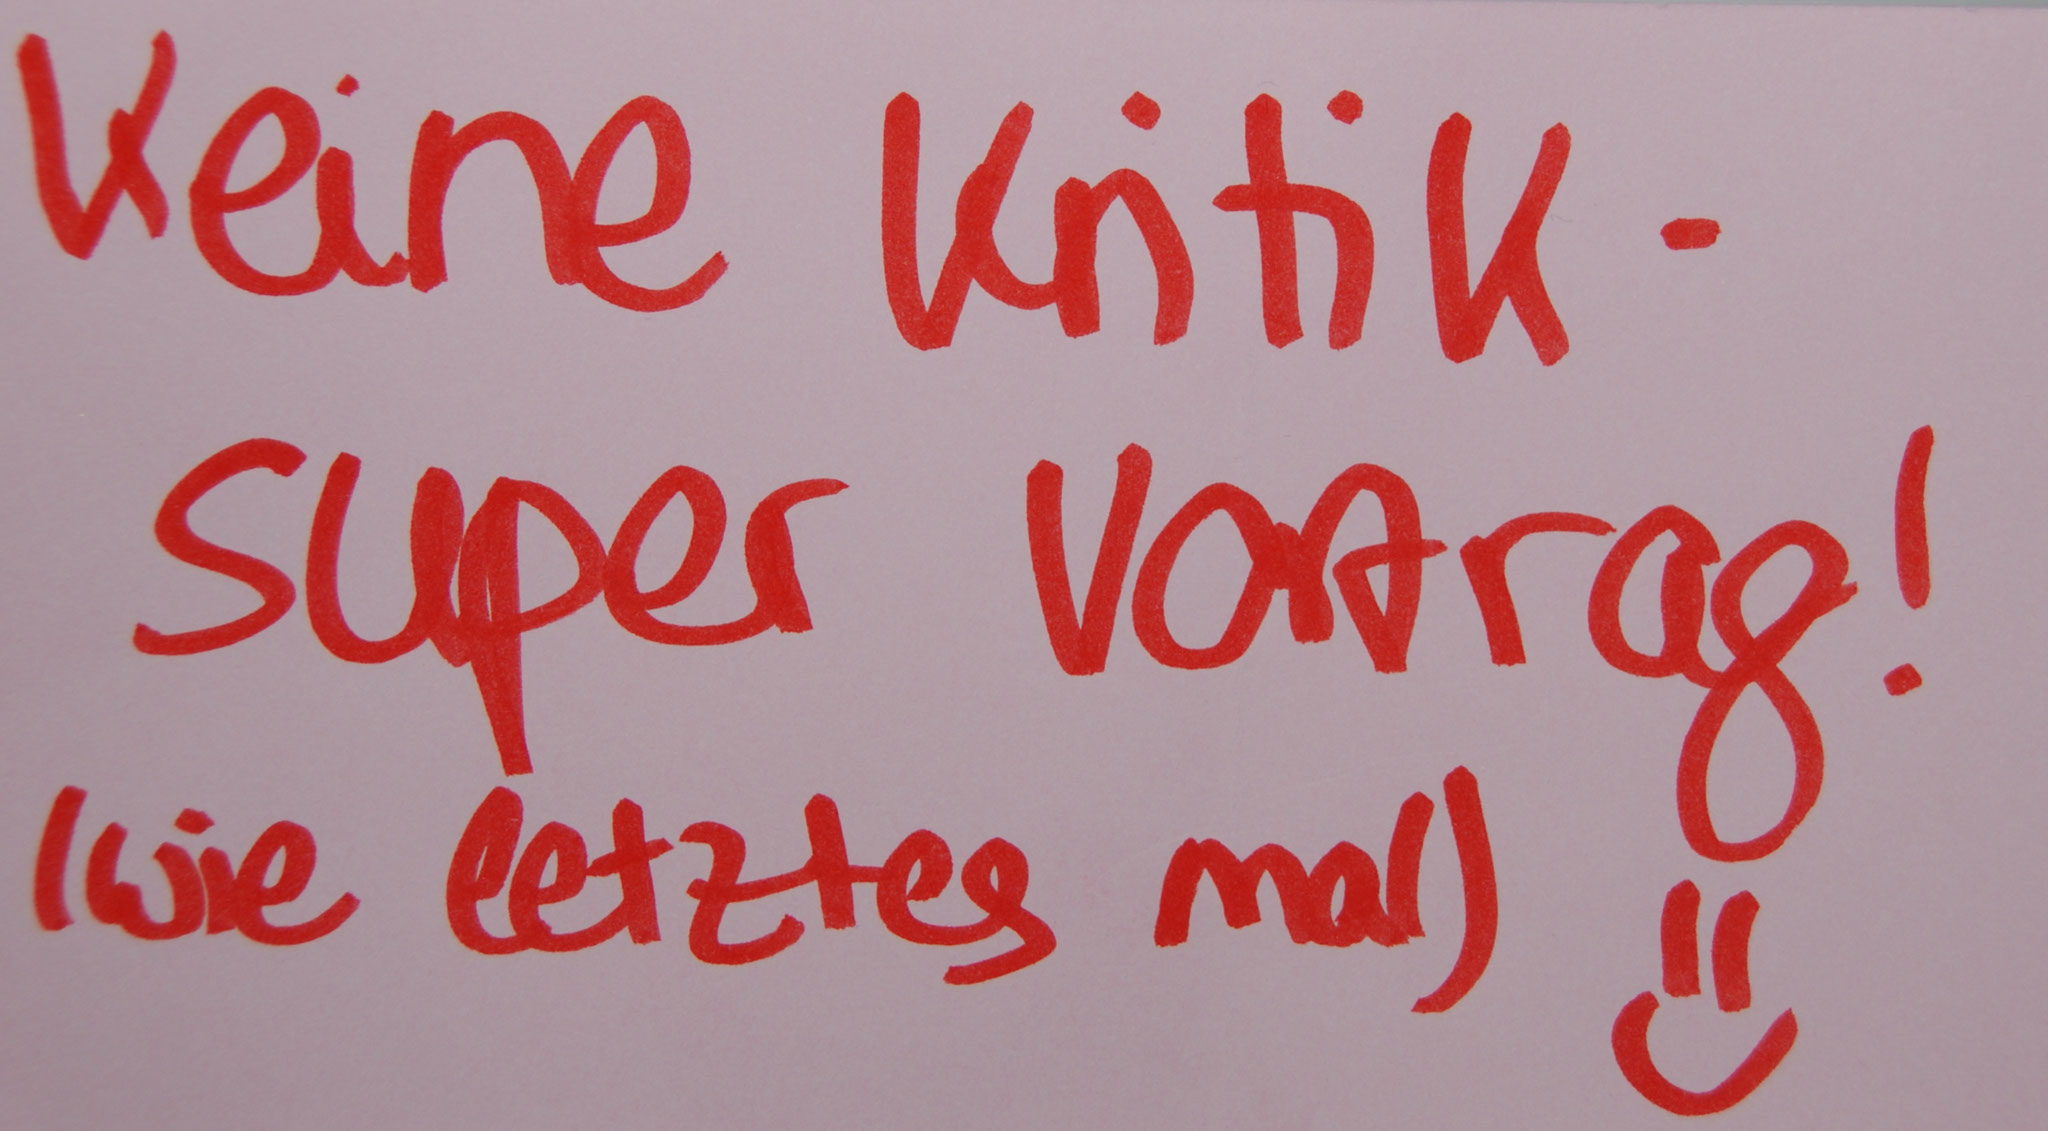 Keine Kritik -
super Vortrag!
(wie letztes mal)